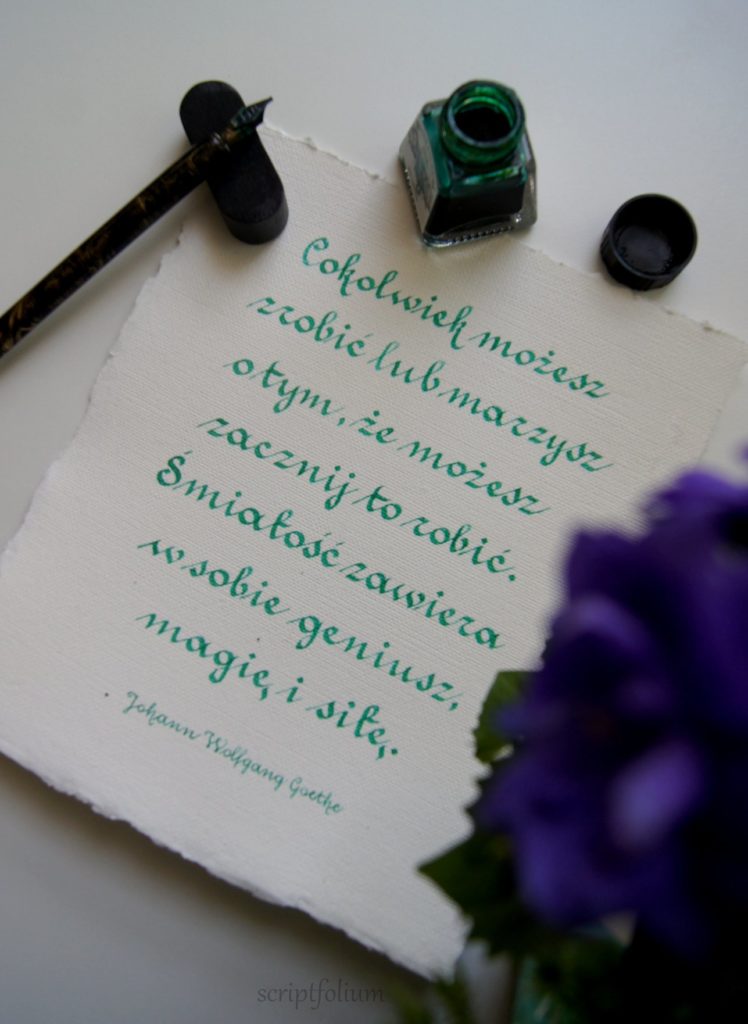 Cokolwiek możesz
zrobić lub marzysz
o tym, że możesz
zacznij to robić.
Śmiałość zawiera
w sobie geniusz,
magię, i siłę.
Johann Wolfgang Goethe
scriptfolium